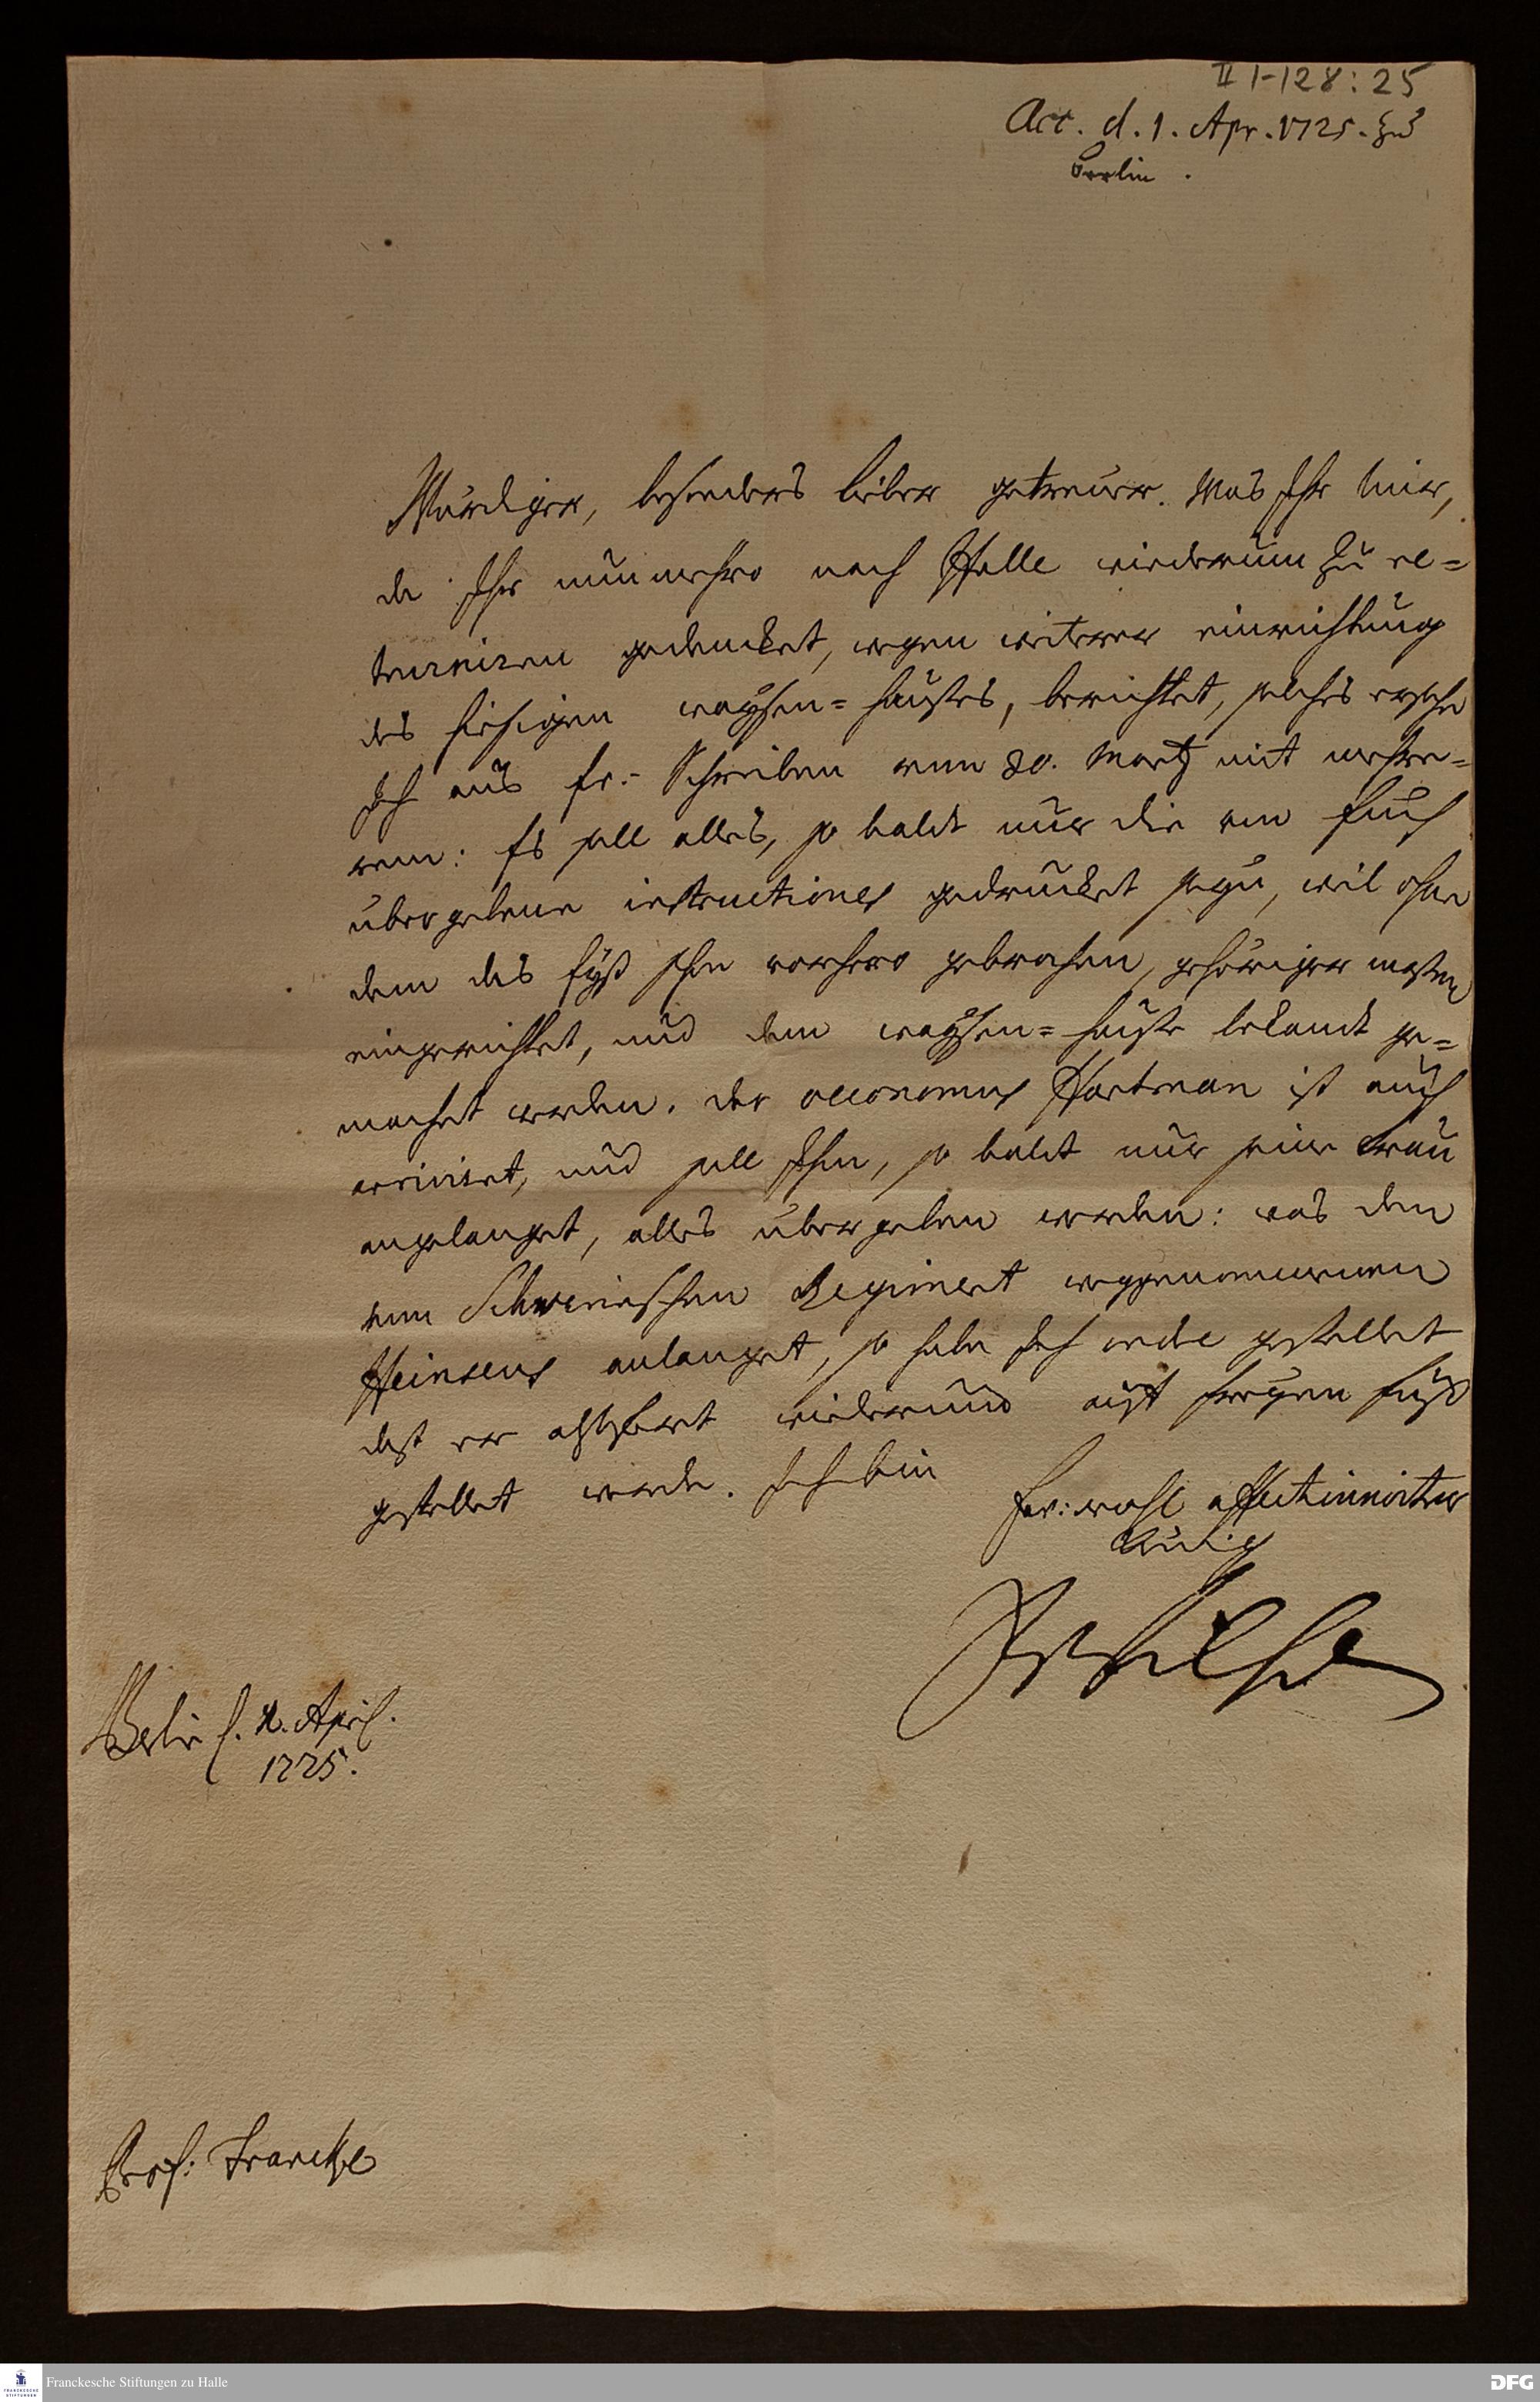 II 1-128:25
Acc. d. 1. Apr. 1725. zu
Berlin.
Würdiger, besonders lieber getreuer. Was Ihr mir,
da Ihr nunmehro nach Halle wiederum zu re=
turniren gedencket, wegen weiterer einrichtung
des hiesigen waysen=hauses, berichtet, solches ersehe
Ich aus Er.- Schreiben vom 30. Martz mit mehre=
rem: Es soll alles, so baldt nur die von Euch
übergebene instructiones gedrucket seyn, weil ohne
dem das Eyß schon vorhero gebrochen, gehöriger maßen
eingerichtet, und dem waysen=hause bekandt ge=
machet werden. der oeconomus Hartman ist auch
arriviret, und soll Ihm, so baldt nur seine Frau
angelanget, alles übergeben werden: was den
vom Schwerinschen Regiment weggenommenen
anlanget, so habe Ich ordre gestellet
daß er wiederumb auf freyen fuß
gestellet werde. Ich bin
Er: wohl affectionirter
König
FrWilhelm
Berlin d. April.
1725.
Prof: Francke
Franckesche Stiftungen zu Halle
DFG